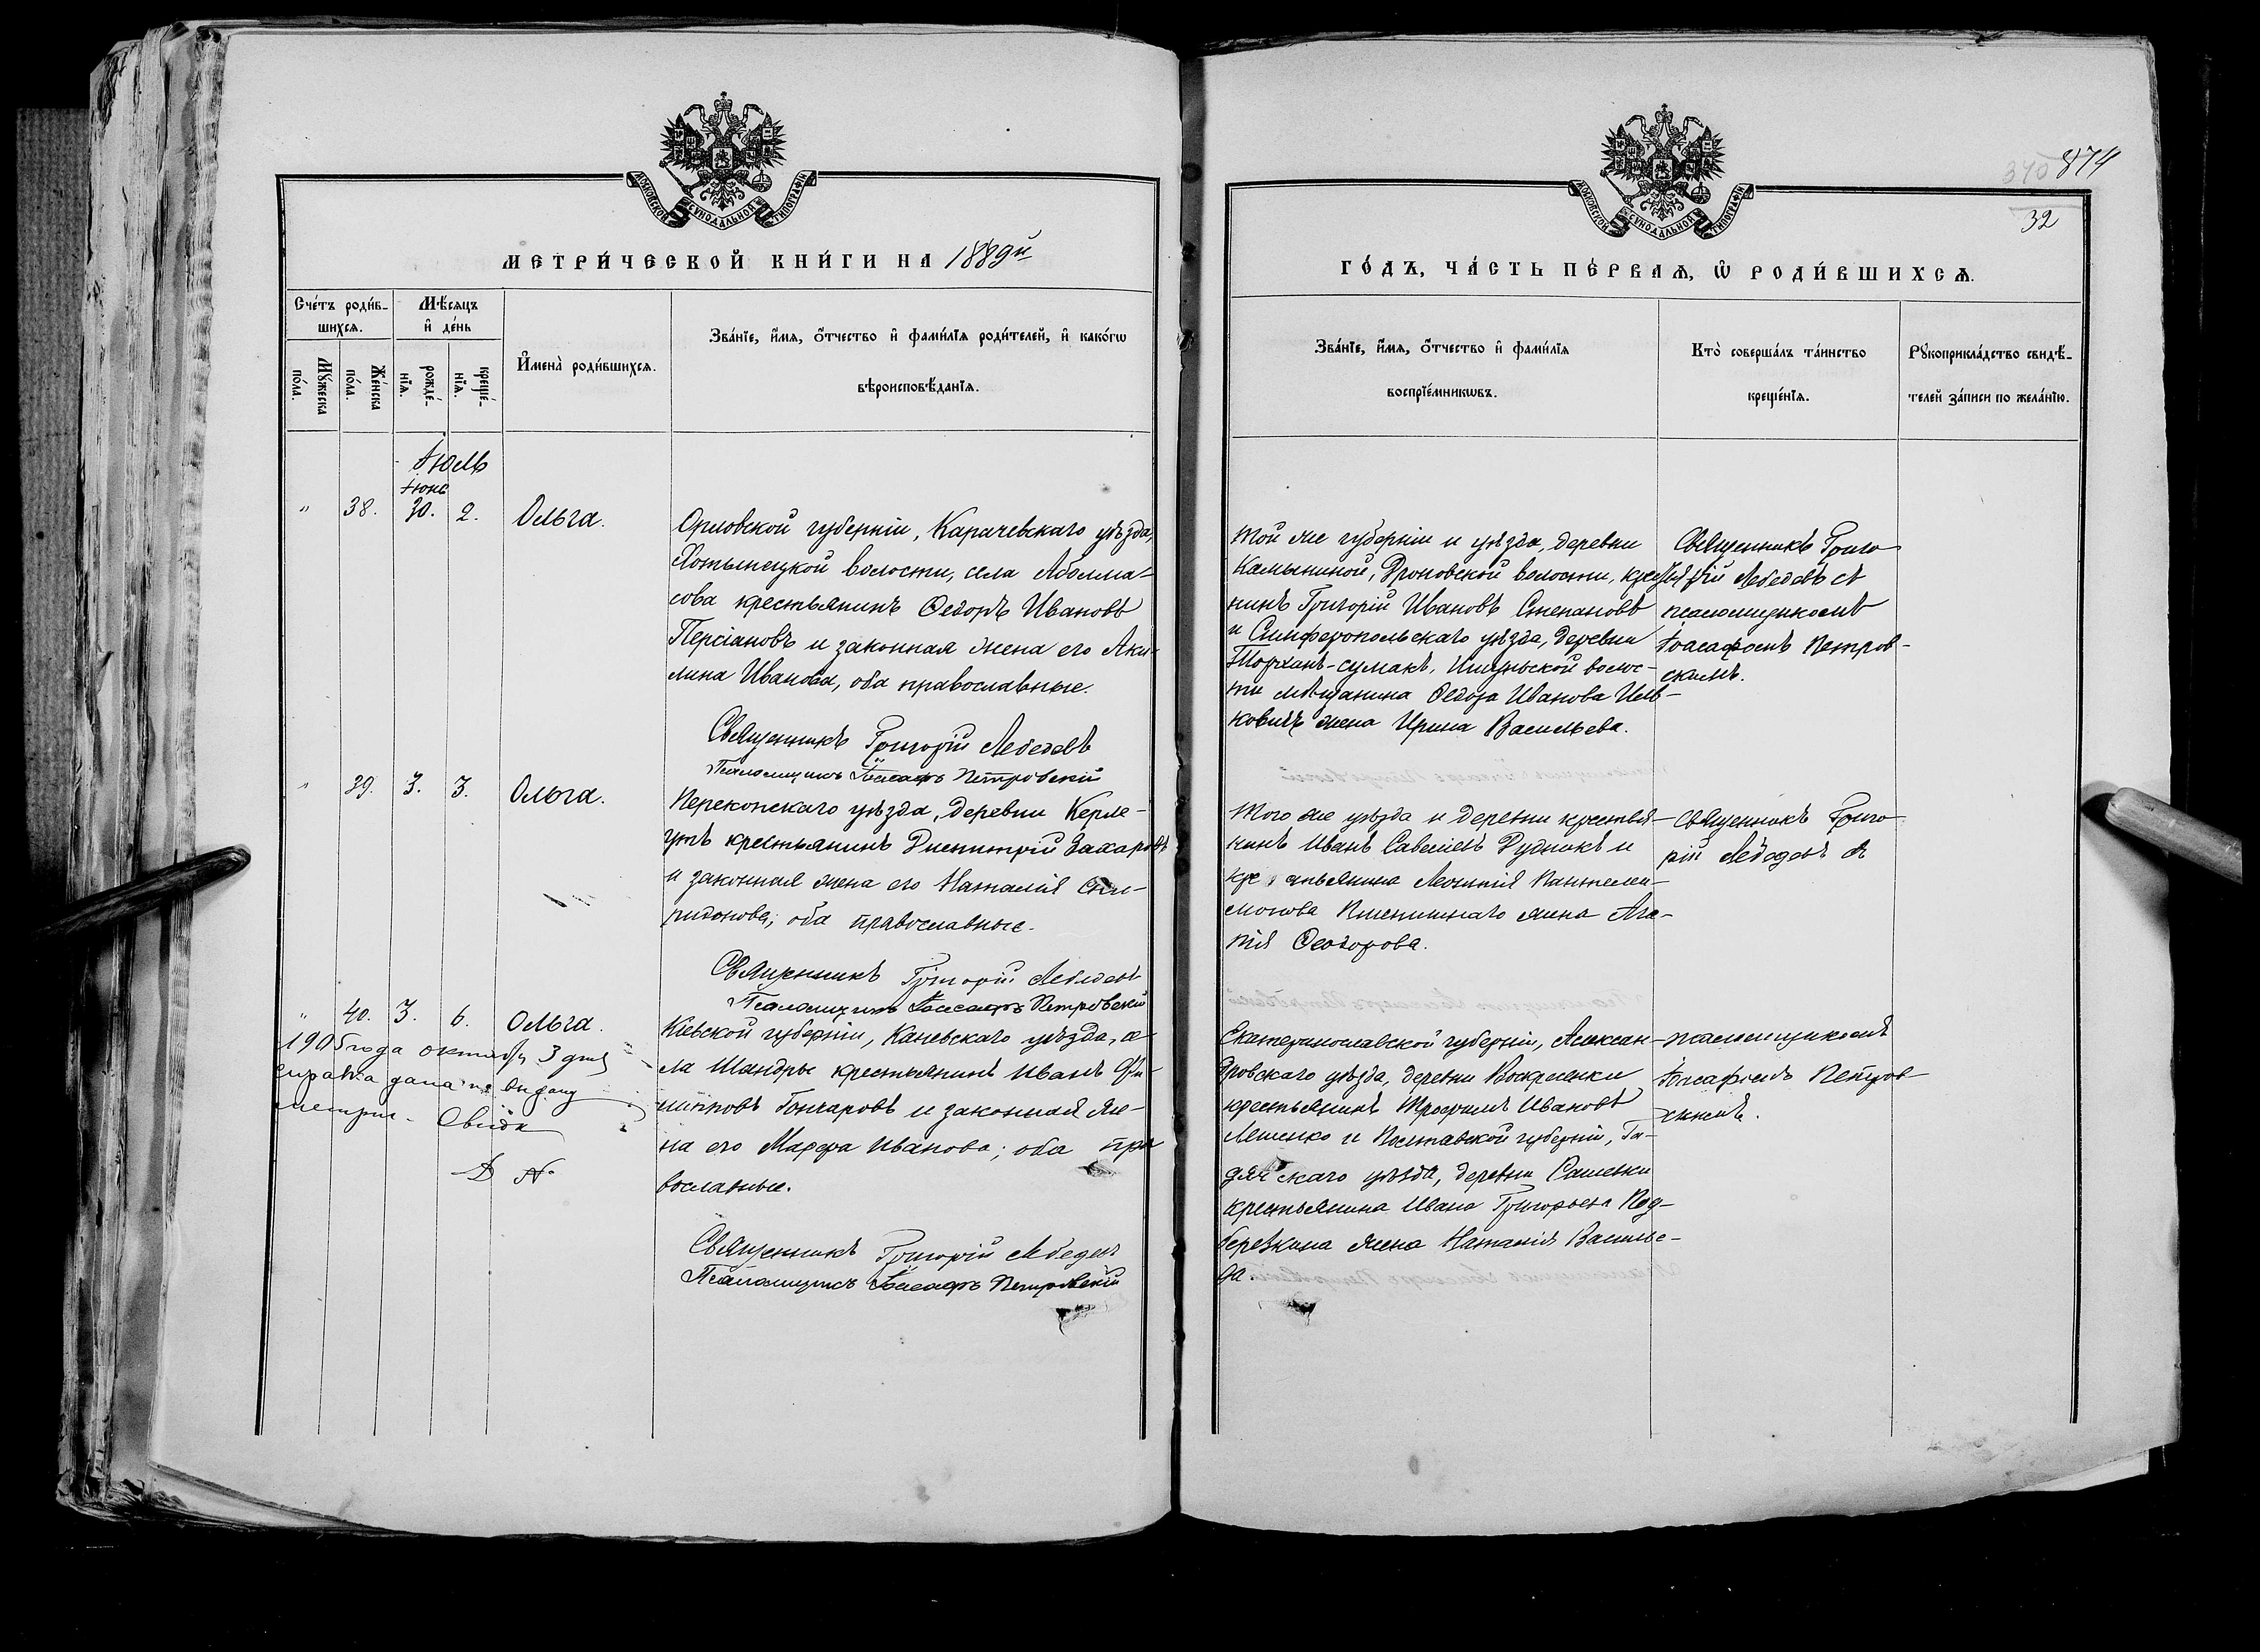 МОСКОВСКОЙ СѴНОДАЛЬНОЙ ТИПОГРАФІИ
МЕТРИ́ЧЕСКОЙ КНИ́ГИ НА 1889й
Сче́тъ роди́в-
шихсѧ.
Мѣ́сѧцъ
и҆ де́нь
Мꙋ́жеска
по́ла.
Же́нска
по́ла.
рожде́-
нїѧ.
креще́-
нїѧ.
И҆мена̀ роди́вшихсѧ.
Зва́нїе, и҆́мѧ, ѻ҆́тчество и҆ фами́лїѧ роди́телей, и҆ како́гѡ
вѣроисповѣ́данїѧ.
Іюль
Іюнь
" 38. 30. 2. Ольга.
Орловской губерніи, Карачевскаго уѣзда,
Хотынецкой волости, села Аболма-
сова крестьянинъ Ѳедоръ Ивановъ
Персіановъ и законная жена его Аки-
лина Иванова, оба православные.
Священникъ Григорій Лебедевъ
Псаломщикъ Іоасафъ Петровскій
" 39. 3. 3. Ольга.
Перекопскаго уѣзда, деревни Керле-
утъ крестьянинъ Димитрій Захаровъ
и законная жена его Наталія Спи-
ридонова; оба православные.
Священникъ Григорій Лебедевъ
Псаломщикъ Іоасафъ Петровскій
" 40. 3. 6. Ольга.
1905 года октября 3 дня
справка дана на выдачу
метрик.
Кіевской губерніи, Каневскаго уѣзда, се-
ла Шандры крестьянинъ Иванъ Фи-
липповъ Гончаровъ и законная же-
на его Марфа Иванова; оба пра
вославные.
Священникъ Григорій Лебедевъ
Псаломщикъ Іоасафъ Петровскій
340 874
32
МОСКОВСКОЙ СѴНОДАЛЬНОЙ ТИПОГРАФІИ
ГО́ДЪ, ЧА́СТЬ ПЕ́РВАѦ, Ѡ҆ РОДИ́ВШИХСѦ.
Зва́нїе, и҆́мѧ, ѻ҆́тчество и҆ фами́лїѧ
воспрїе́мникѡвъ.
Кто̀ соверша́лъ та́инство
креще́нїѧ.
Рꙋкоприкла́дство свидѣ́-
телей за́писи по жела́нїю.
Той же губерніи и уѣзда, деревни
Камыниной, Дроновской волости, крестья
нинъ Григорій Ивановъ Степановъ
и Симферопольскаго уѣзда, деревни
Тархан-сумакъ, Ишуньской волос-
ти мѣщанина Ѳедора Иванова
жена Ирина Васильева.
Священникъ Григо
рій Лебедевъ съ
псаломщикомъ
Іоасафомъ Петров-
скимъ.
Того же уѣзда и деревни крестья-
нинъ Иванъ Савелiевъ Рудникъ и
крестьянина Леонтія Пантелеи-
монова Пшеничнаго жена Ага-
пія Ѳеодорова.
Священникъ Григо
рій Лебедевъ съ
Екатеринославской губерніи, Алексан-
дровскаго уѣзда, деревни Воскресенки
крестьянинъ Трофимъ Ивановъ
Ляшенко и Полтавской губерніи, Га-
дячскаго уѣзда, деревни Сашевки
крестьянина Ивана Григорьева Под-
березкина жена Наталія Василье-
ва.
псаломщикомъ
Іоасафомъ Петров
скимъ.